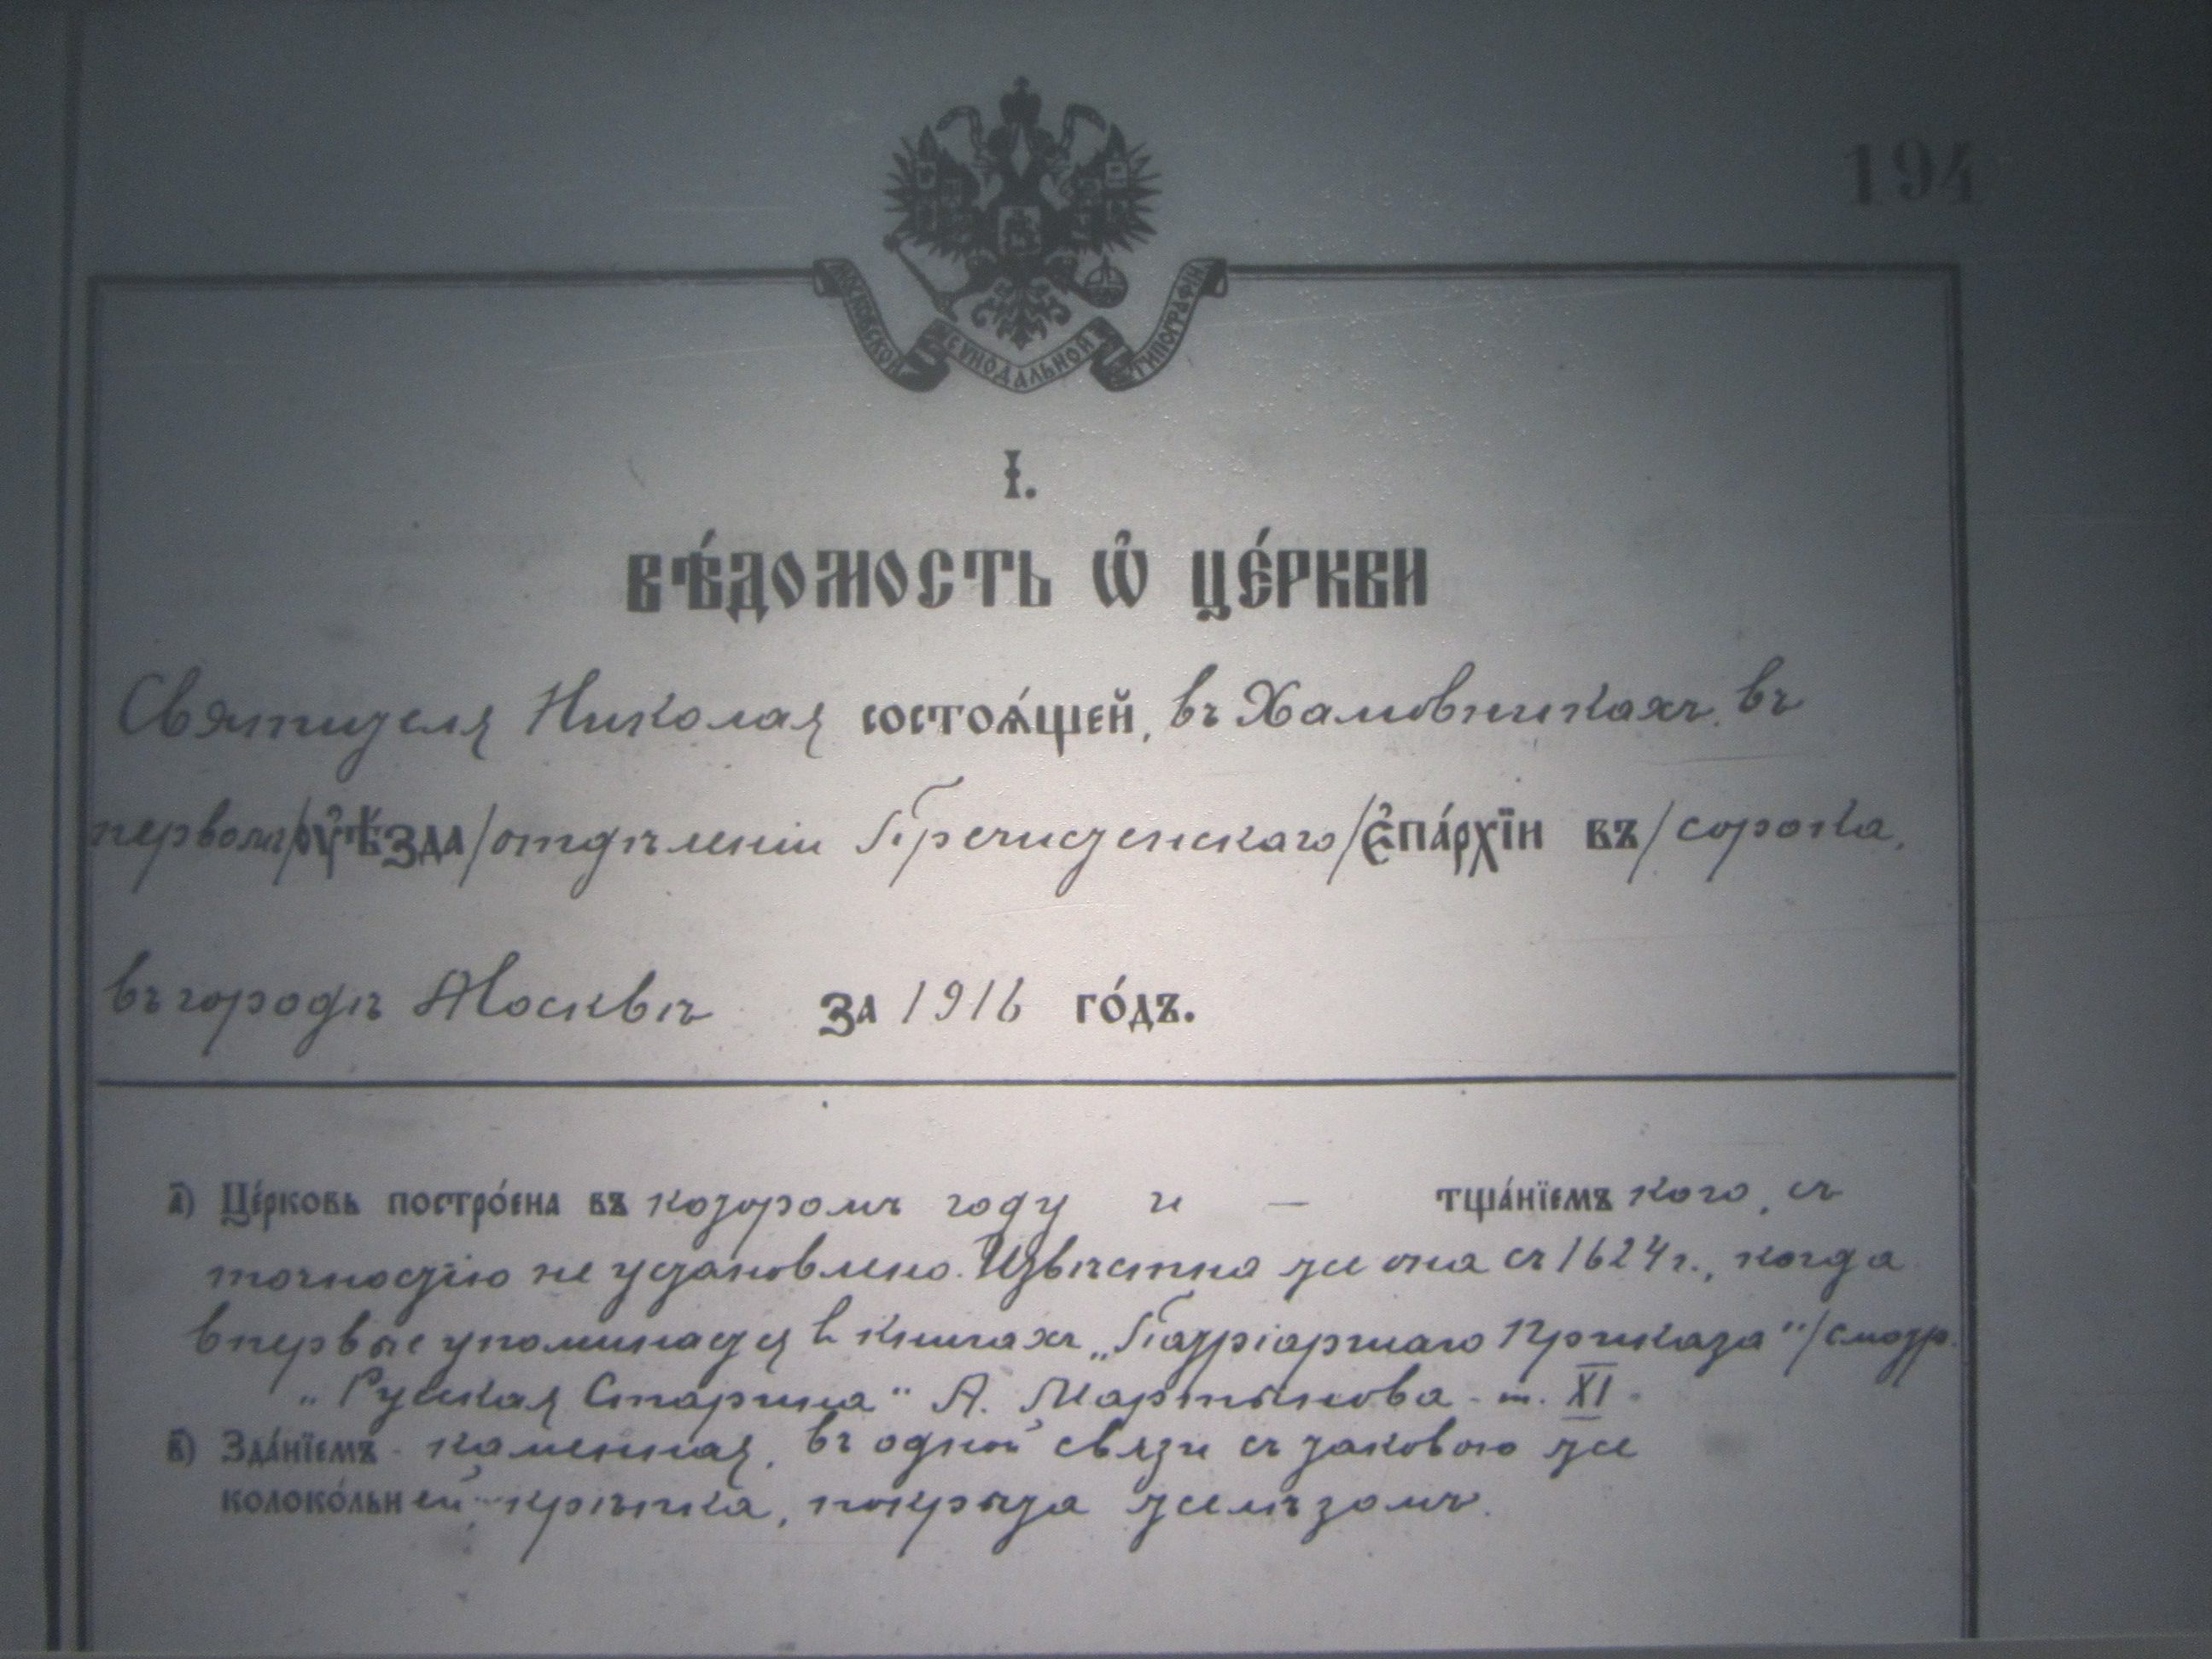 194
МОСКОВСКОЙ СѴНОДАЛЬНОЙ ТИПОГРАФІИ
І.
ВѢ́ДОМОСТЬ Ѽ ЦЕ́РКВИ
Святителя Николая состоѧ́щей, въ Хамовникахъ, въ
первомъ/ᲂу҆ѣ́зда/отдѣленіи Пречистенскаго/є҆па́рхїи въ/сорока,
въ городѣ Москвѣ за 1916 го́дъ.
а҃) Це́рковь постро́ена въ которомъ году и — тща́нїемъ кого, съ
точностію не установлено. Извѣстна же она съ 1624 г., когда
впервые упоминается в книгахъ „Патріаршаго Приказа"/смотр.
„Русская Старина" А. Мартынова - т. XI.
в҃) Зда́нїемъ - каменная, въ одной связи съ таковою же
колоко́льней - крѣпка, покрыта желѣзомъ.